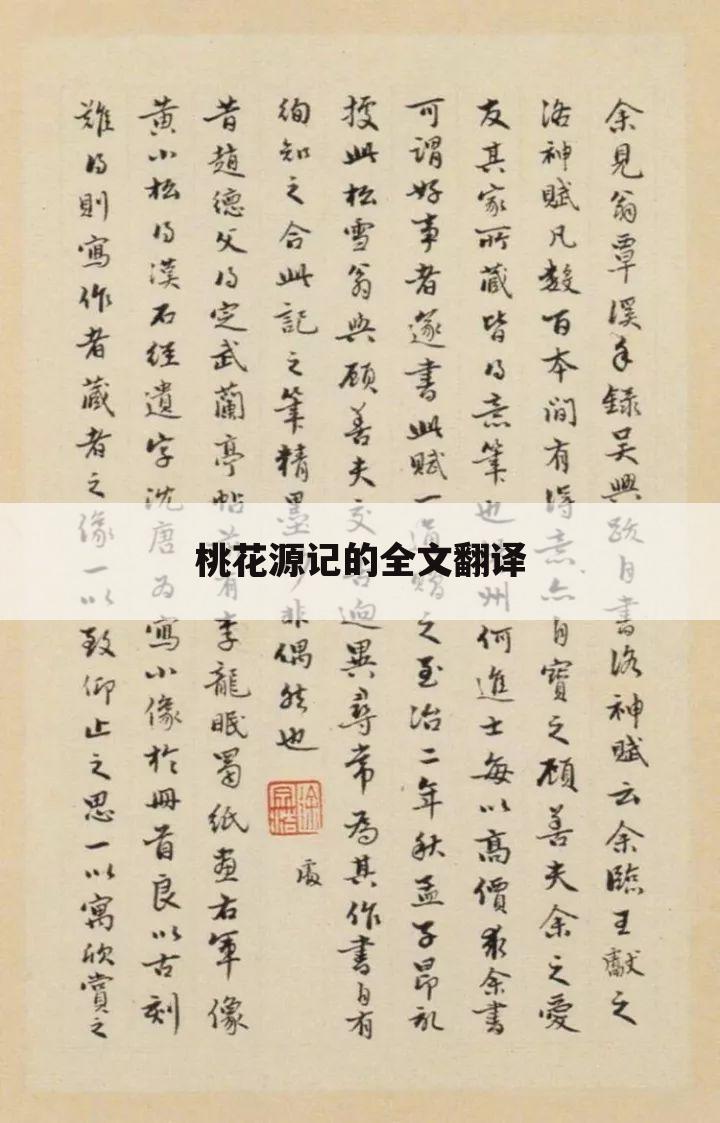 桃花源记的全文翻译
余見翁覃溪手錄吳興跋自書洛神賦云余臨王獻之
洛神賦凡數百本間有得意亦自寶之顧善夫余之愛
友其家所藏皆得意筆也州何進士每以高價求余書
可謂好事者遂書此賦一之至治二年秋孟子昂
據此松雪翁與顧善夫交迥異尋常為其作書自有
知之合此記之筆精墨非偶然也
昔趙德父得定武蘭亭帖有李龍眠蜀紙畫右軍像
黃小松得漢石經遺字沈唐為寫小像於冊首良以古刻
難得則寫作者藏者之像一以致仰止之思一以寓欣賞之